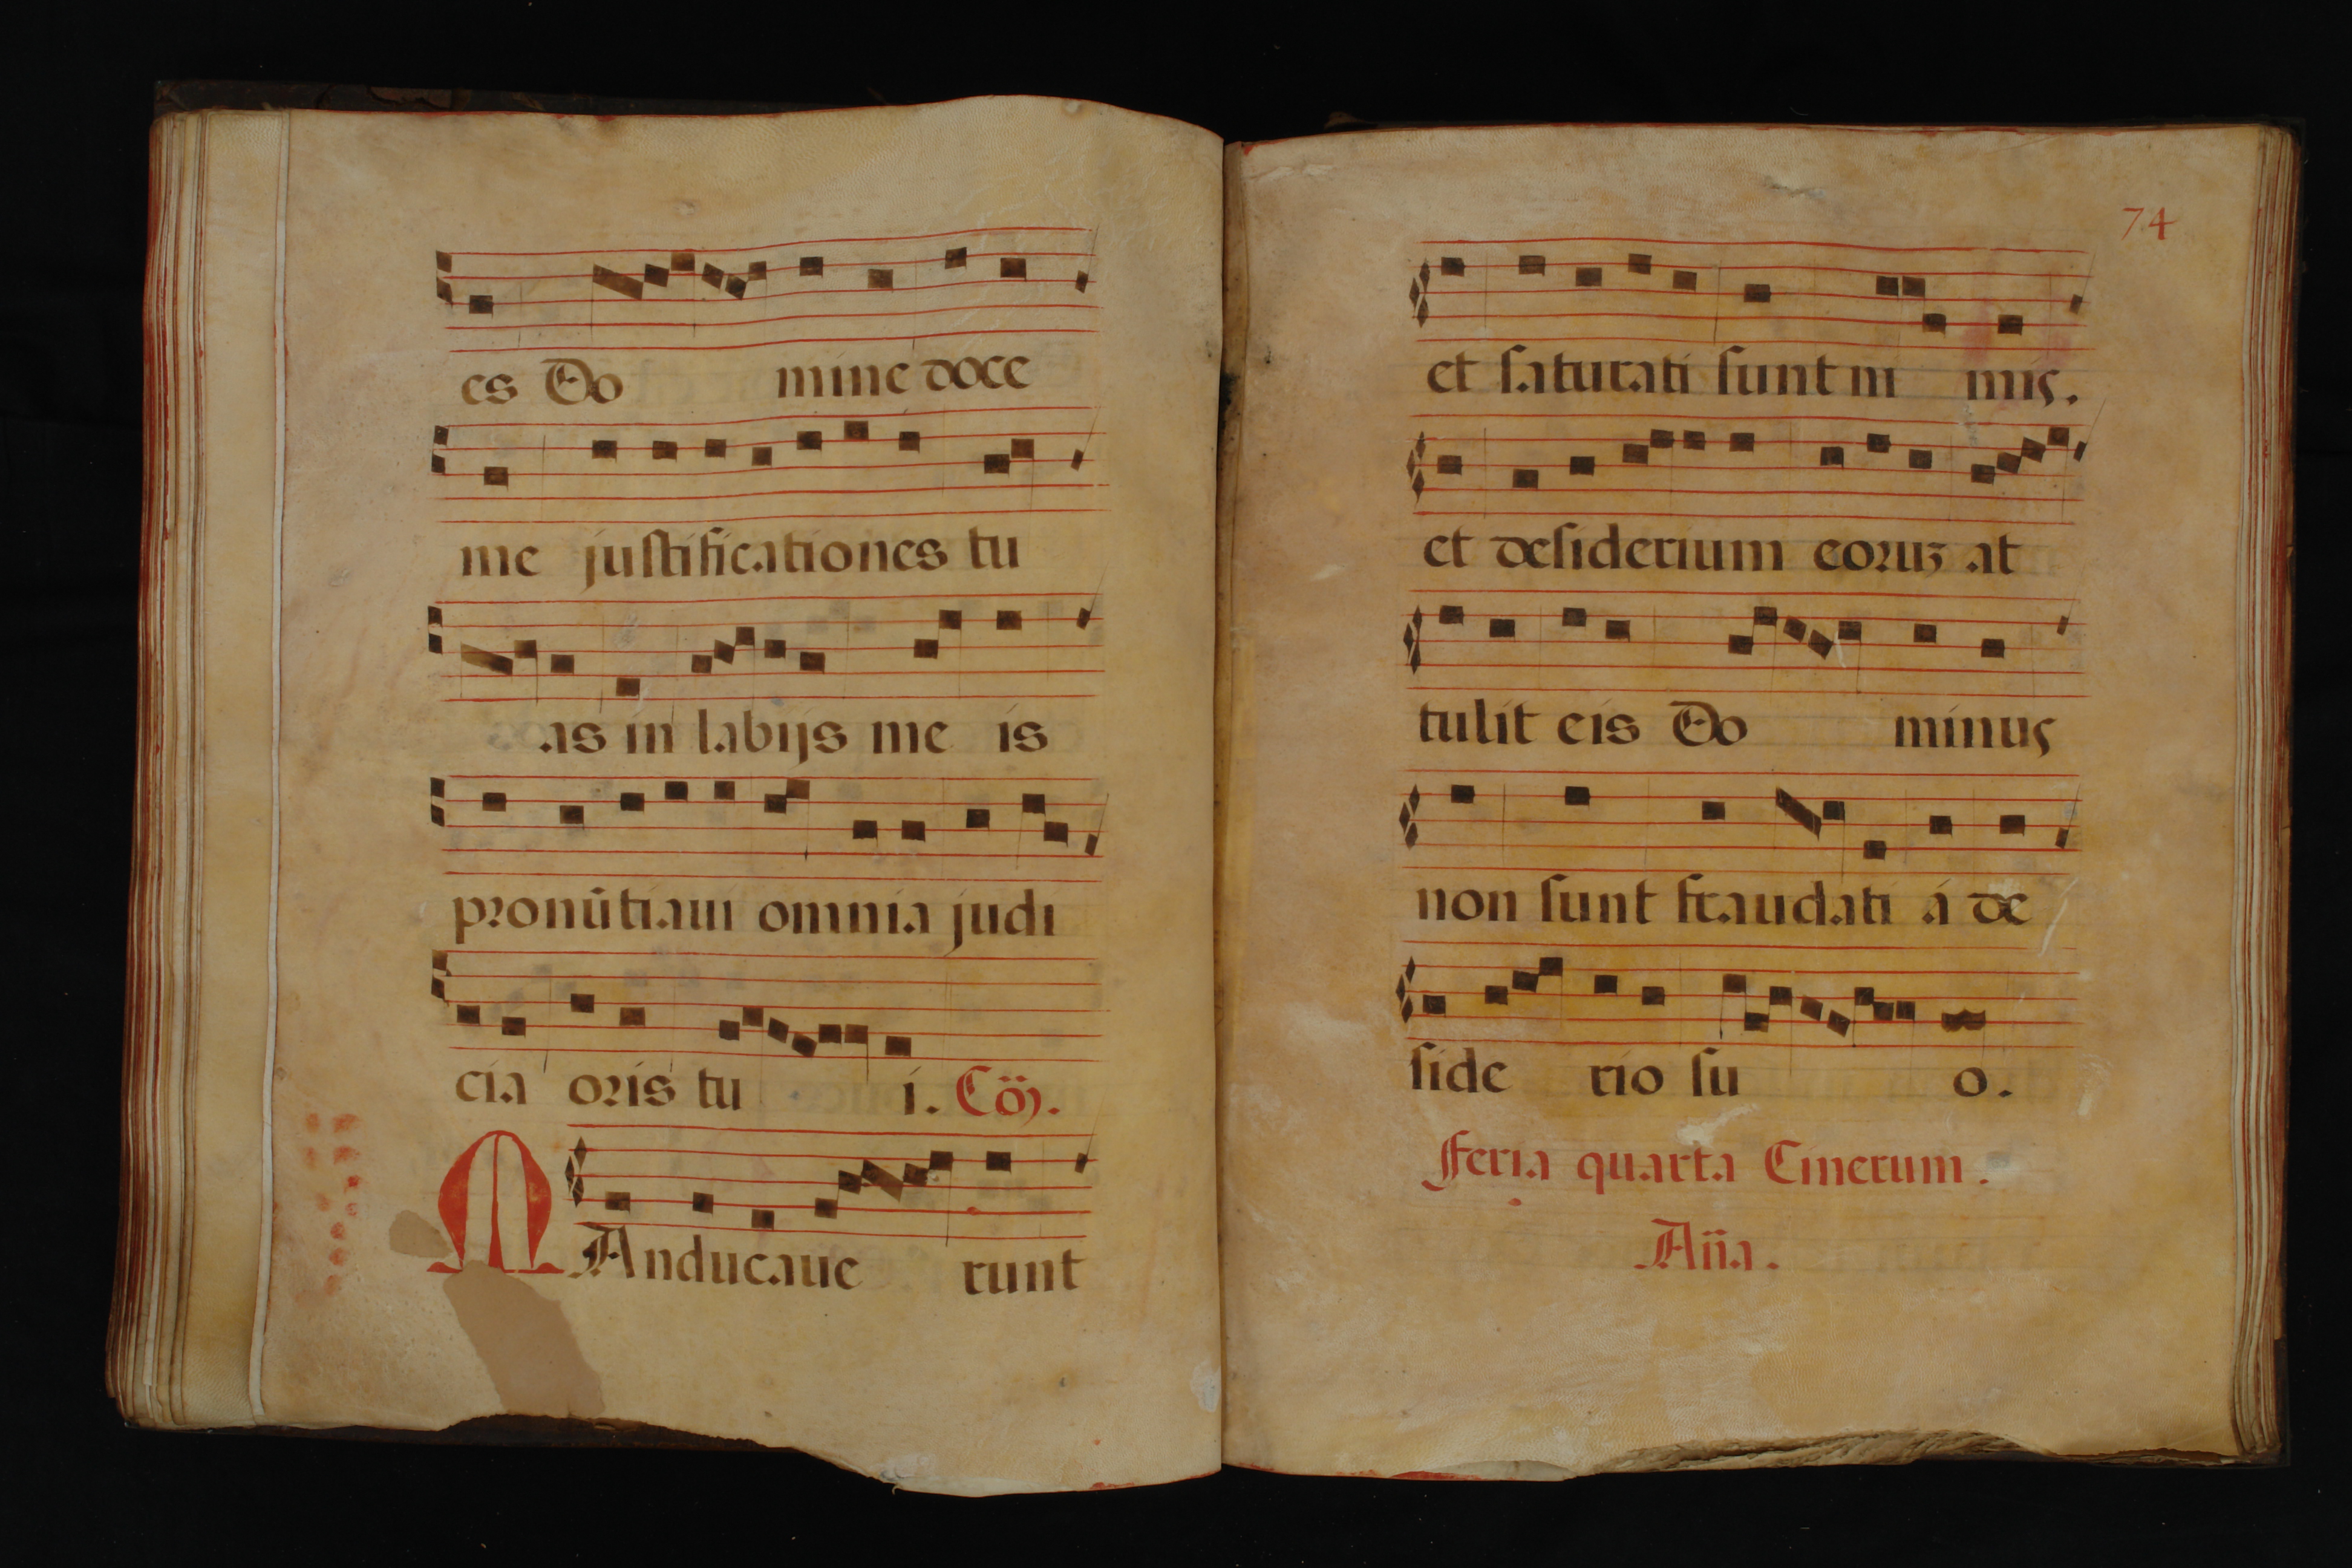 es Do mine doce
me justificationes tu
as in labijs me is
pronūtiaui omnia judi
cia oris tu i. Cōɔ.
MAnducaue runt
74
et saturati sunt ni mis.
et desiderium eoruʒ at
tulit eis Do minus
non sunt fraudati á de
side rio su o.
Feria quarta Cinerum.
Añа.